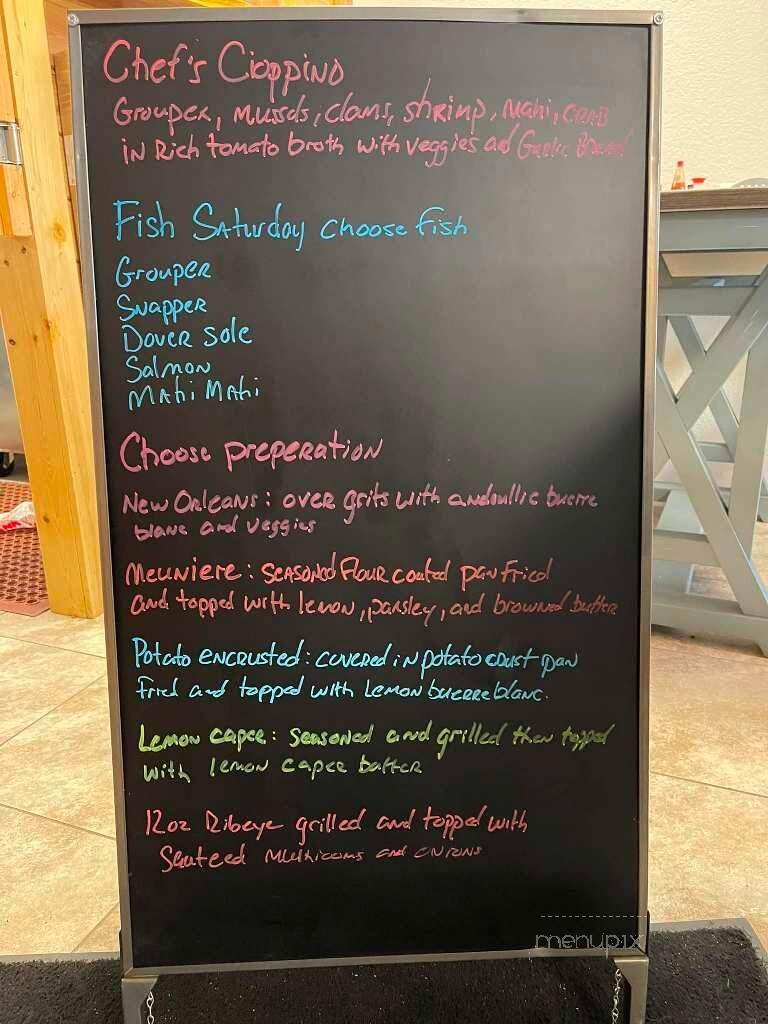 Chef's Cioppino
Grouper, mussels, clams, shrimp, mahi, crab
in Rich tomato broth with veggies and Garlic Bread
Fish Saturday choose fish
Grouper
Snapper
Dover sole
Salmon
Mahi Mahi
Choose preperation
New Orleans: over grits with andoullie buerre
blanc and veggies
Meuniere: seasoned flour coated pan fried
and topped with lemon, parsley, and browned butter
Potato encrusted: covered in potato crust pan
fried and topped with Lemon buerre blanc.
Lemon caper: seasoned and grilled then topped
with lemon caper butter
12oz Ribeye grilled and topped with
Sauteed mushrooms and onions
menupix